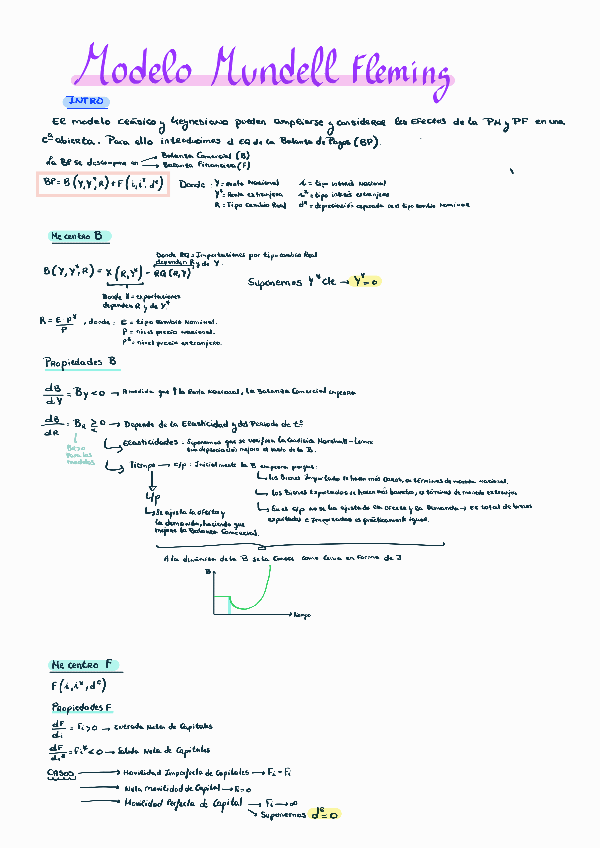 Modelo Mundell Fleming
INTRO
El modelo clásico y Keynesiano pueden ampliarse y considerar los efectos de la PM y PF en una
cª abierta. Para ello introducimos el EQ de la Balanza de Pagos (BP).
La BP se descompone en → Balanza Comercial (B)
→ Balanza Financiera (F)
BP = B (Y, Y*, R) + F (i, i*, dᵉ)
Donde Y = Renta Nacional i = tipo interés nacional
Y* = Renta extranjera i* = tipo interés extranjero
R = Tipo Cambio Real dᵉ = depreciación esperada en el tipo Cambio Nominal
Me centro B
Donde RQ = Importaciones por tipo cambio Real
dependen R y de Y.
B (Y, Y*, R) = X (R, Y*) - RQ (R, Y)
Suponemos Y* cte → Y* = 0
Donde X = exportaciones
dependen R y de Y*
R = E·P*/P , donde: E = tipo cambio nominal.
P = nivel precio nacional.
P* = nivel precio extranjero.
Propiedades B
dB/dY = By < 0 → A medida que ↑ la Renta Nacional, la Balanza Comercial empeora
dB/dR = BR ≷ 0 → Depende de la Elasticidad y del Periodo de tº
BR>0
Para los
modelos
Elasticidades. Suponemos que se verifica la Condición Marshall-Lerner
una depreciación mejora el saldo de la B.
Tiempo → c/p: Inicialmente la B empeora porque:
Los Bienes Importados se hacen más caros, en términos de moneda nacional.
Los Bienes Exportados se hacen más baratos, en términos de moneda extranjera
En el c/p no se ha ajustado la oferta y la Demanda → el total de bienes
exportados e importados es prácticamente igual.
L/p
Se ajusta la oferta y
la demanda, haciendo que
mejore la Balanza Comercial.
A la dinámica de la B se la conoce como Curva en forma de J
B
tiempo
Me centro F
F (i, i*, dᵉ)
Propiedades F
dF/di = Fi > 0 → Entrada Neta de Capitales
dF/di* = Fi* < 0 → Salida Neta de Capitales
CASOS → Movilidad Imperfecta de Capitales → Fi = Fi
→ Nula movilidad de Capital → Fi = 0
→ Movilidad Perfecta de Capital → Fi → ∞
Suponemos dᵉ = 0